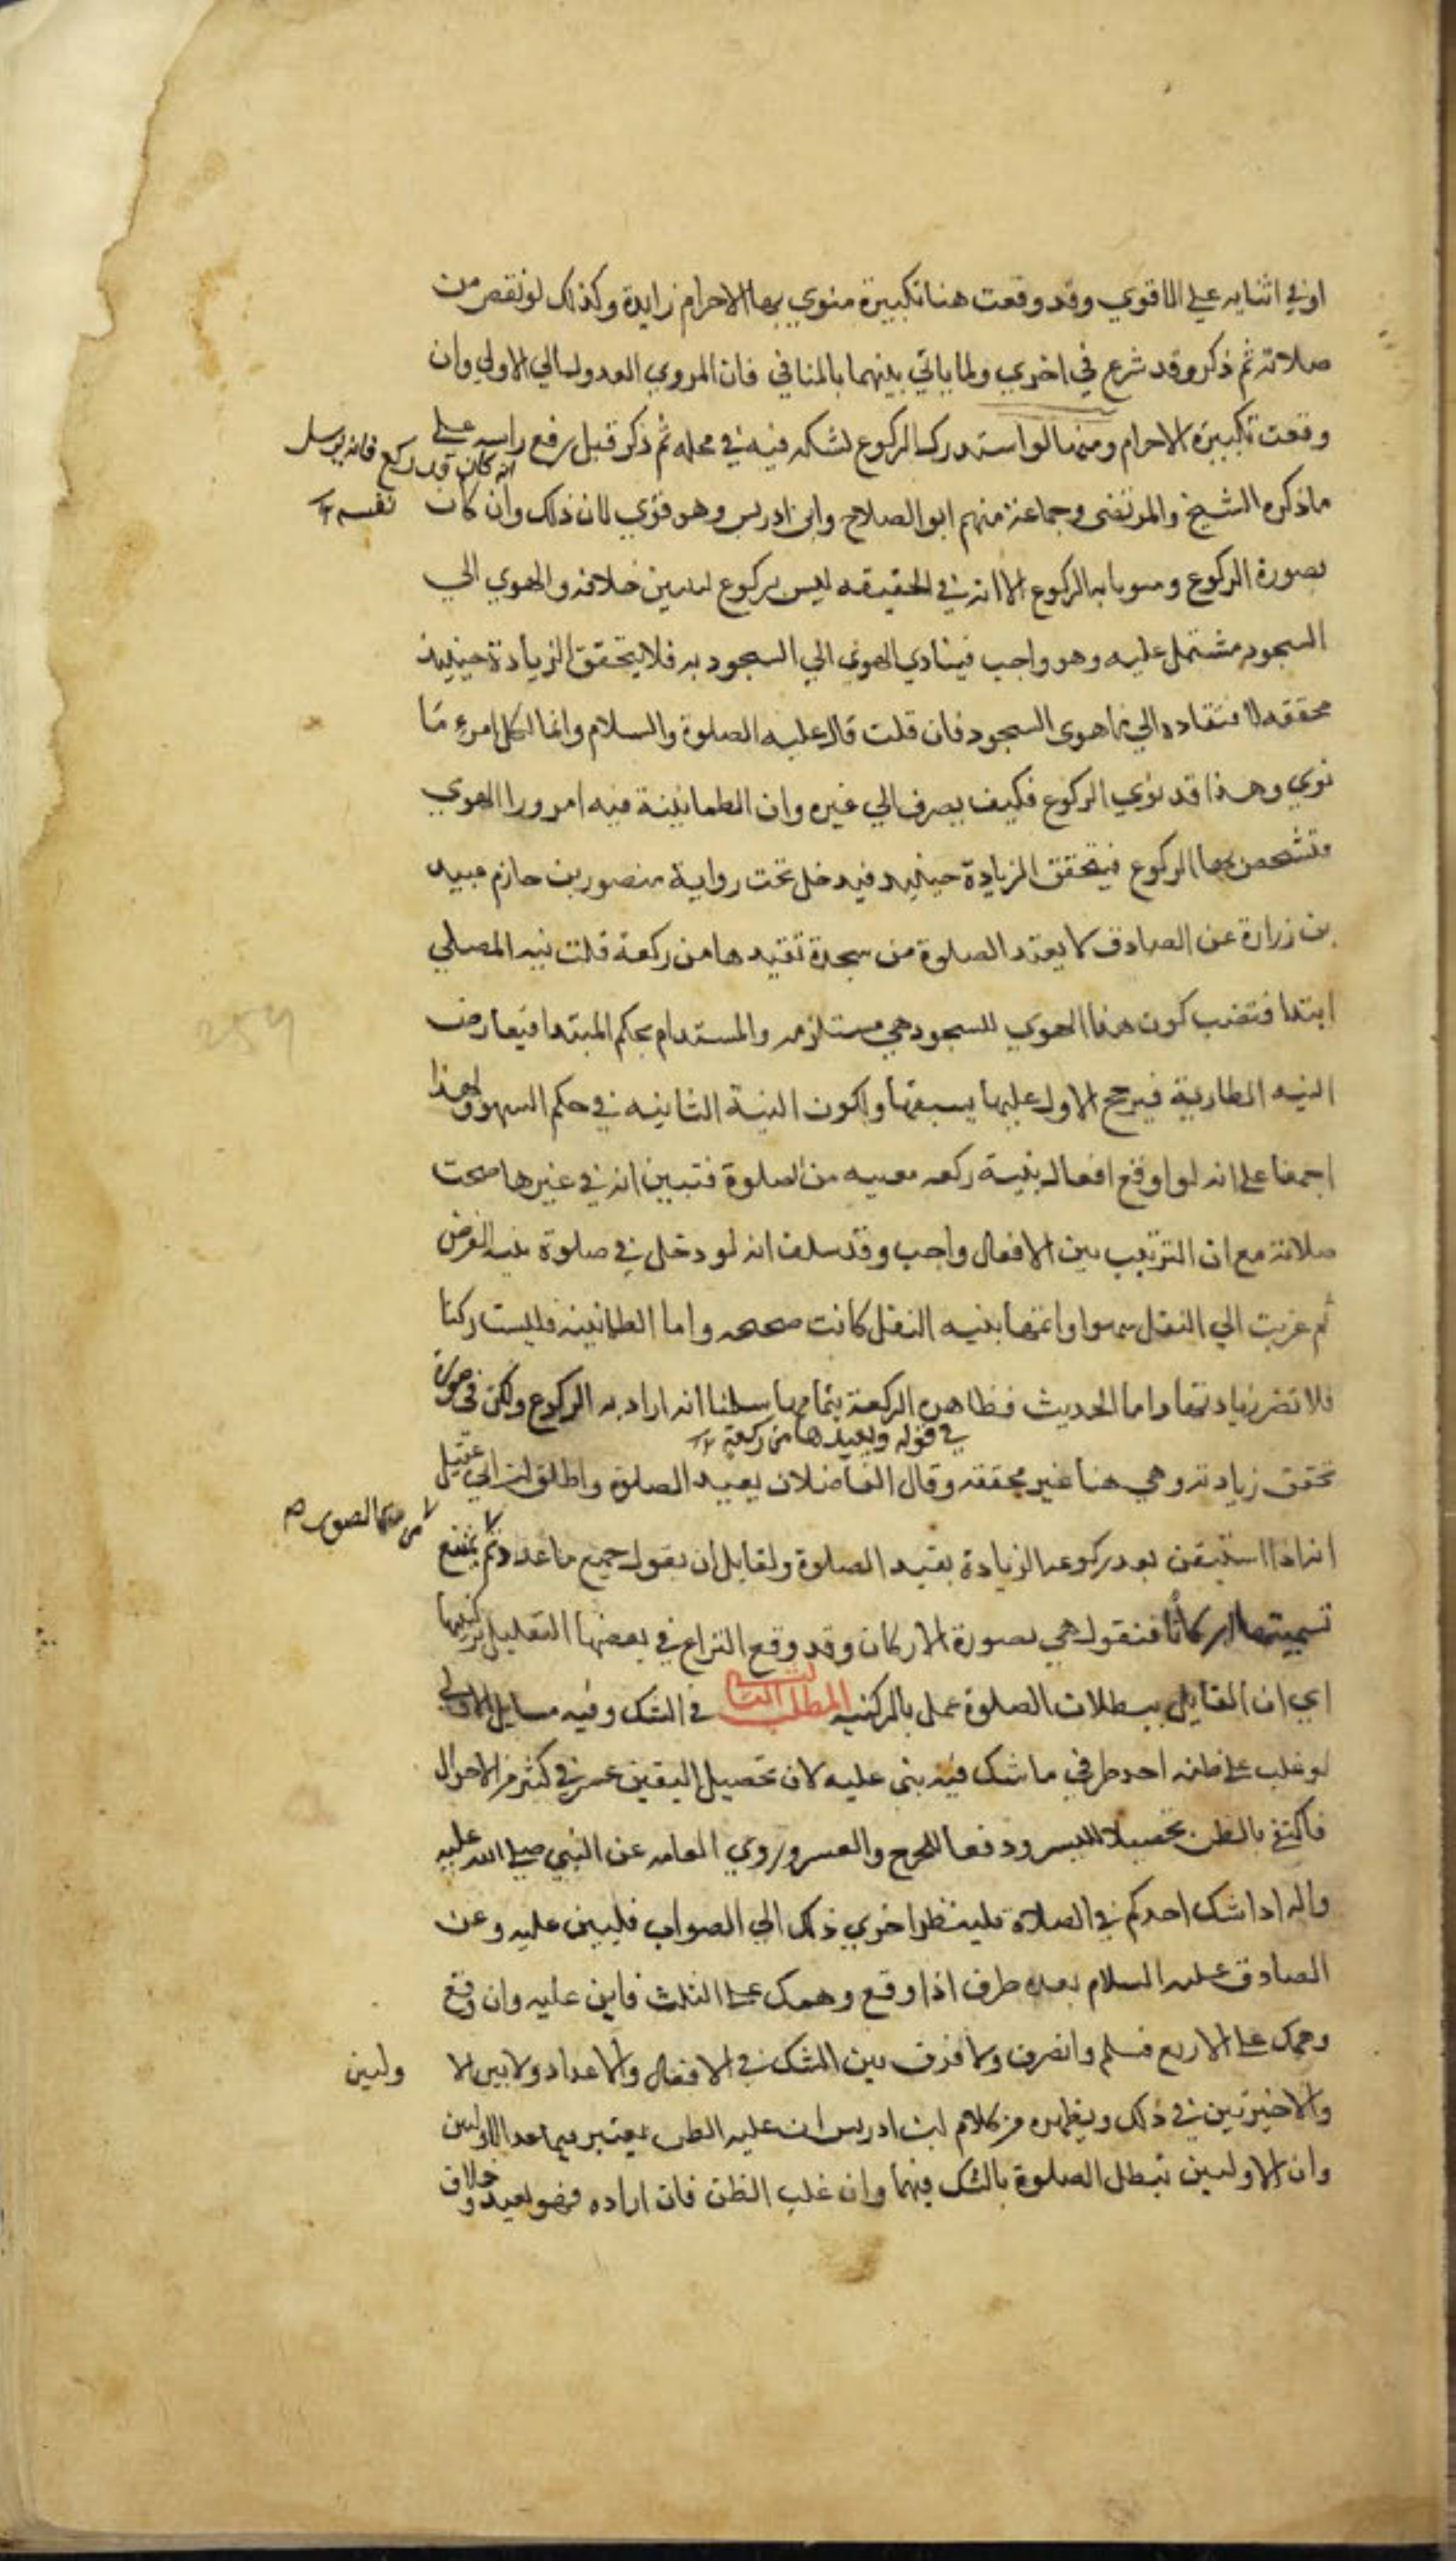 او في اثنايه علي الاقوي وقد وقعت هنا تكبيرة منوي بها الاحرام زايدة وكذلك لو نقص من
صلاته ثم ذكر وقد شرع في اخري ولما ياتي بينهما بالمنافي فان المروي العدول الي الاولي وان
وقعت تكبيرة الاحرام ومنها لو استدرك الركوع لشكه فيه في محله ثم ذكر قبل رفع راسه علي
انه كان قد ركع فانه يرسل
نفسه
ماذكره الشيخ والمرتضى وجماعة منهم ابو الصلاح وابن ادريس وهو قوي لان ذلك وان كان
بصورة الركوع ومنويا به الركوع الا انه في الحقيقه ليس بركوع لتبين خلافه والهوي الي
السجود مشتمل عليه وهو واجب فيتادي الهوي الي السجود به فلا يتحقق الزيادة حينيذ
محققه لافتقاده الي ما هوى السجود فان قلت قال عليه الصلوة والسلام وانما لكل امرء مّا
نوي وهذا قد نوي الركوع فكيف يصرف الي غيره وان الطمانينة فيه امر ورا الهوي
فتشخص بها الركوع فيتحقق الزيادة حينيذ فيدخل تحت رواية منصور بن حازم عبيد
بن زرارة عن الصادق لا يعتد الصلوة من سجدة تقيدها من ركعة قلت نيه المصلي
ابتدا فتقضب كون هذا الهوي للسجود هي مستلزمه والمستدام بحكم المبتدا فيعارض
النيه الطارية فيرجح الاول عليها بسبقها ولكون النية الثانيه في حكم السهو ولهذا
اجمعنا علي انه لو اوقع افعال بنية ركعه معينه من الصلوة فتبين انه في غيرها صحت
صلاته مع ان الترتيب بين الافعال واجب وقد سلف انه لو دخل في صلوة بنيه الفرض
ثم عزبت الي النفل سهوا واتمها بنيه النفل كانت صحيحه واما الطمانينه فليست ركنا
فلا تضر زيادتها واما الحديث فظاهره الركعة بتمامها سلمنا انه اراد به الركوع ولكن في صورة
في قوله ويعيدها من ركعة
تحقق زيادته وهي هنا غير محققه وقال الفاضلان يعيد الصلوة واطلق ابن ابي عقيل
انه اذا استيقن بعد ركوعه الزيادة يعيد الصلوة ولقايل ان يقول جميع ما عددتم يمتنع
من هذه الصور
تسميتها اركانا فنقول هي بصورة الاركان وقد وقع النزاع في بعضها التعليل بركنيتها
اي ان القايل ببطلان الصلوة عمل بالركنيه المطلب الثاني في الشك وفيه مسايل الاولي
لو غلب علي ظنه احد طرفي ما شك فيه بني عليه لان تحصيل اليقين عسر في كثير من الاحوال
فاكتفي بالظن تحصيلا لليسر ودفعا للحرج والعسر وروي العامه عن النبي صلي الله عليه
واله اذا شك احدكم في الصلاة فلينظر احري ذلك الي الصواب فليبن عليه وعن
الصادق عليه السلام بعده طرق اذا وقع وهمك علي الثلث فابن عليه وان وقع
وهمك علي الاربع فسلم وانصرف ولا فرق بين الشك في الافعال والاعداد ولا بين الا
وليين
والاخيرتين في ذلك ويظهر من كلام ابن ادريس ان غلبه الظن يعتبر فيما عدا الاولين
وان الاوليين تبطل الصلوة بالشك فيهما وان غلب الظن فان اراده فهو بعيد وخلاف